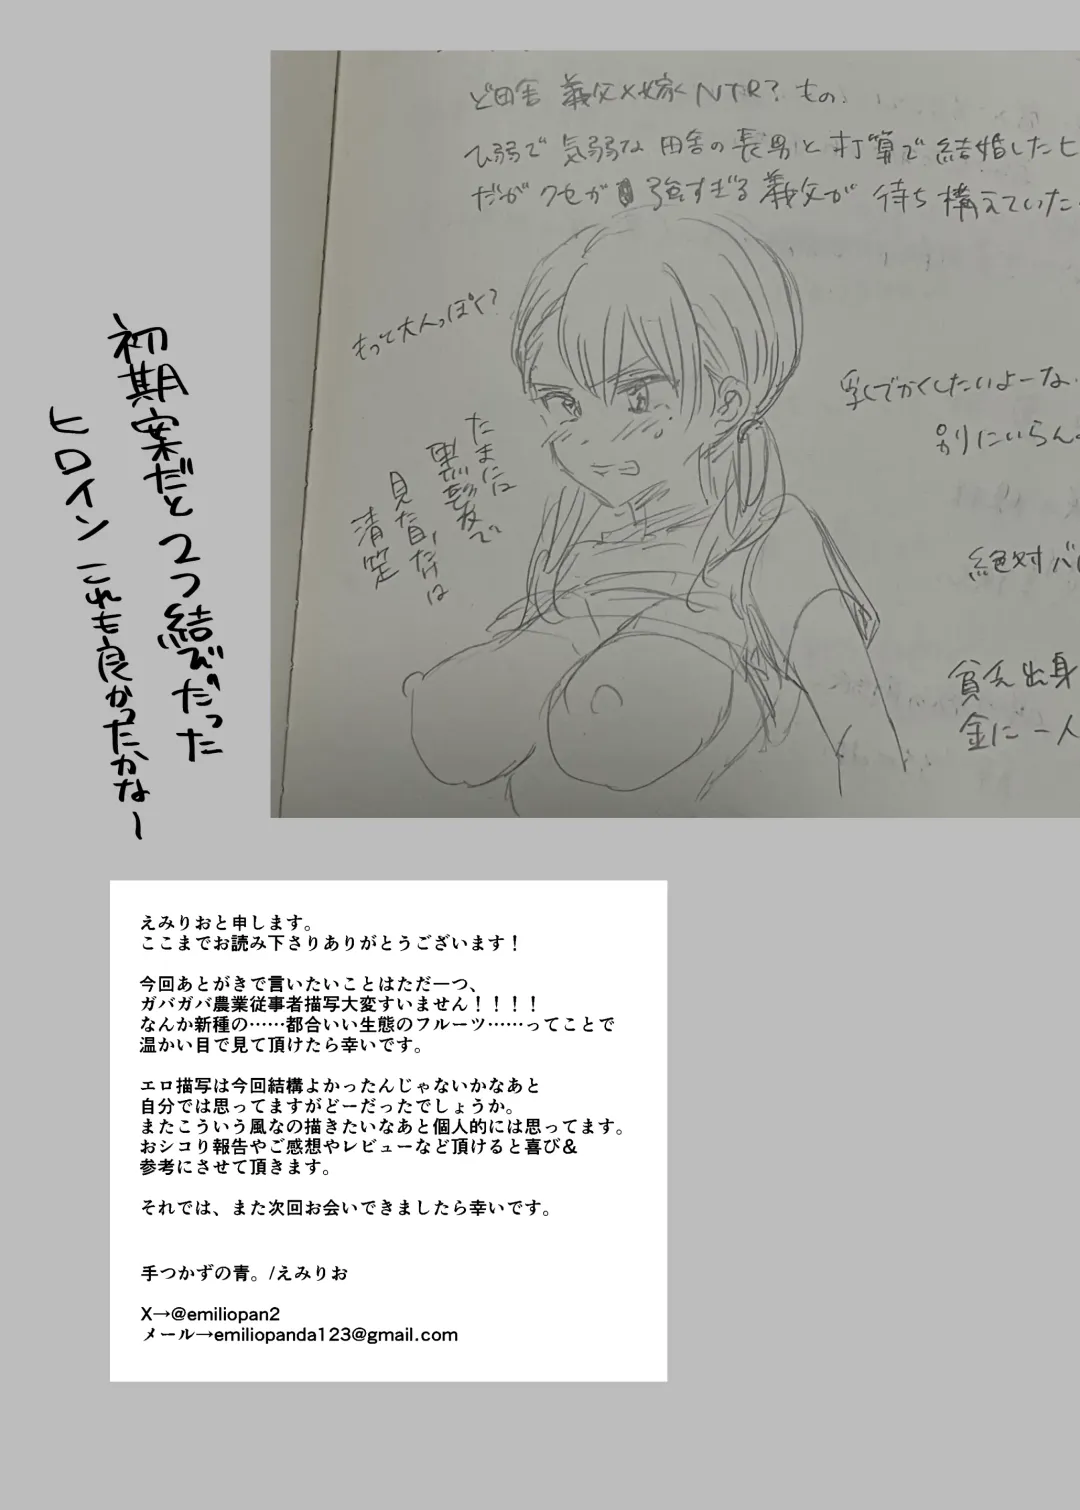 ど田舎 義父×嫁 NTR? もの。
ひ弱で 気弱な 田舎の長男と 打算で 結婚したヒ
だが クセが 強すぎる 義父が 待ち構えていた
もって大人っぽく?
乳でかくしたいよーな
別にいらん
たまには
黒髪で
見た目だけは
清楚
絶対バ
貧乏出身
金に一人
初期案だと 2つ結びだった
ヒロイン これも良かったかなー
えみりおと申します。
ここまでお読み下さりありがとうございます!
今回あとがきで言いたいことはただ一つ、
ガバガバ農業従事者描写大変すいません!!!!
なんか新種の……都合いい生態のフルーツ……ってことで
温かい目で見て頂けたら幸いです。
エロ描写は今回結構よかったんじゃないかなあと
自分では思ってますがどーだったでしょうか。
またこういう風なの描きたいなあと個人的には思ってます。
おシコり報告やご感想やレビューなど頂けると喜び&
参考にさせて頂きます。
それでは、また次回お会いできましたら幸いです。
手つかずの青。/えみりお
X→@emiliopan2
メール→emiliopanda123@gmail.com